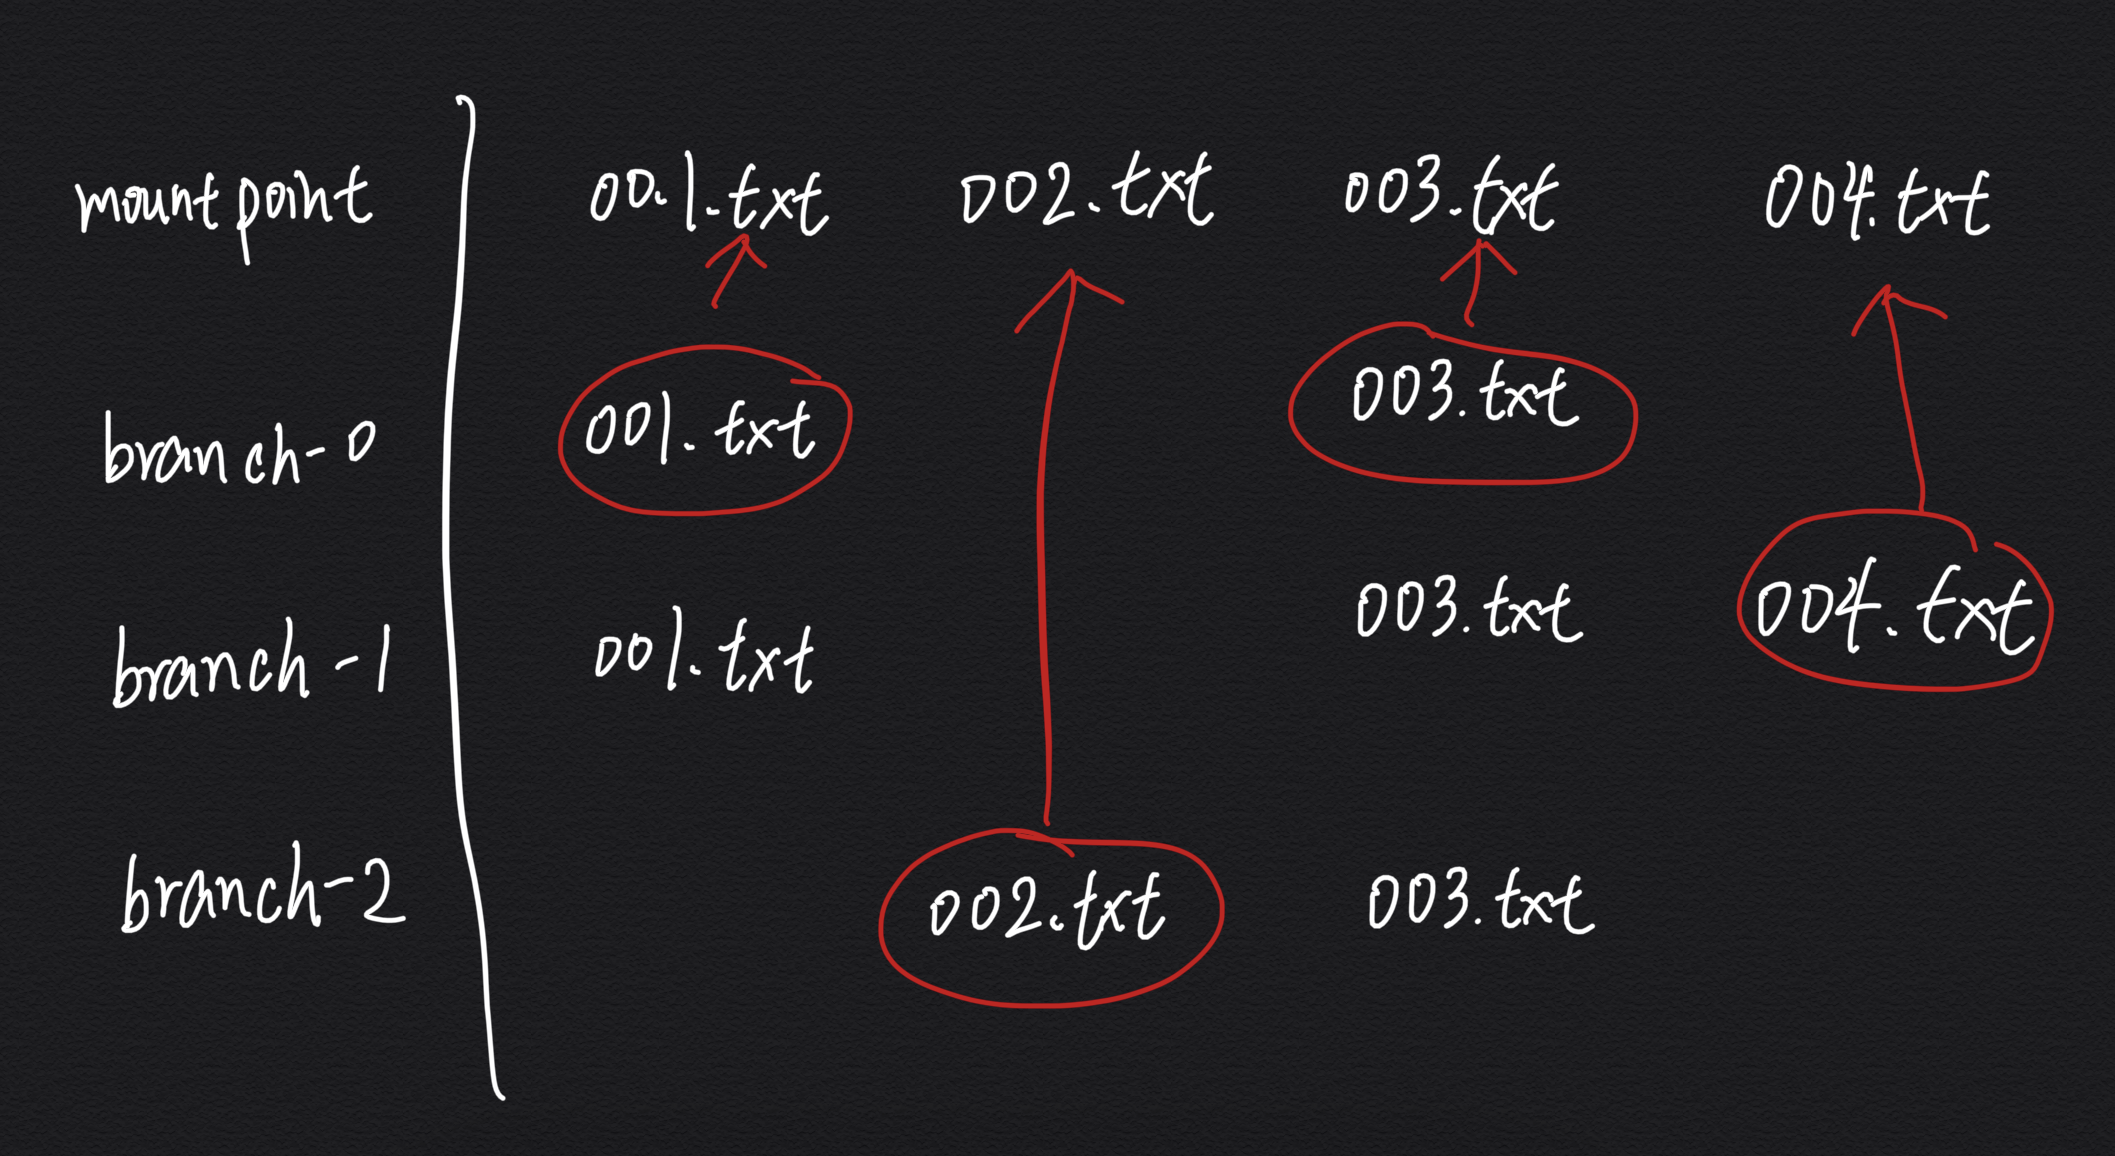 mount point 001.txt 002.txt 003.txt 004.txt
branch-0 001.txt 003.txt
branch-1 001.txt 003.txt 004.txt
branch-2 002.txt 003.txt